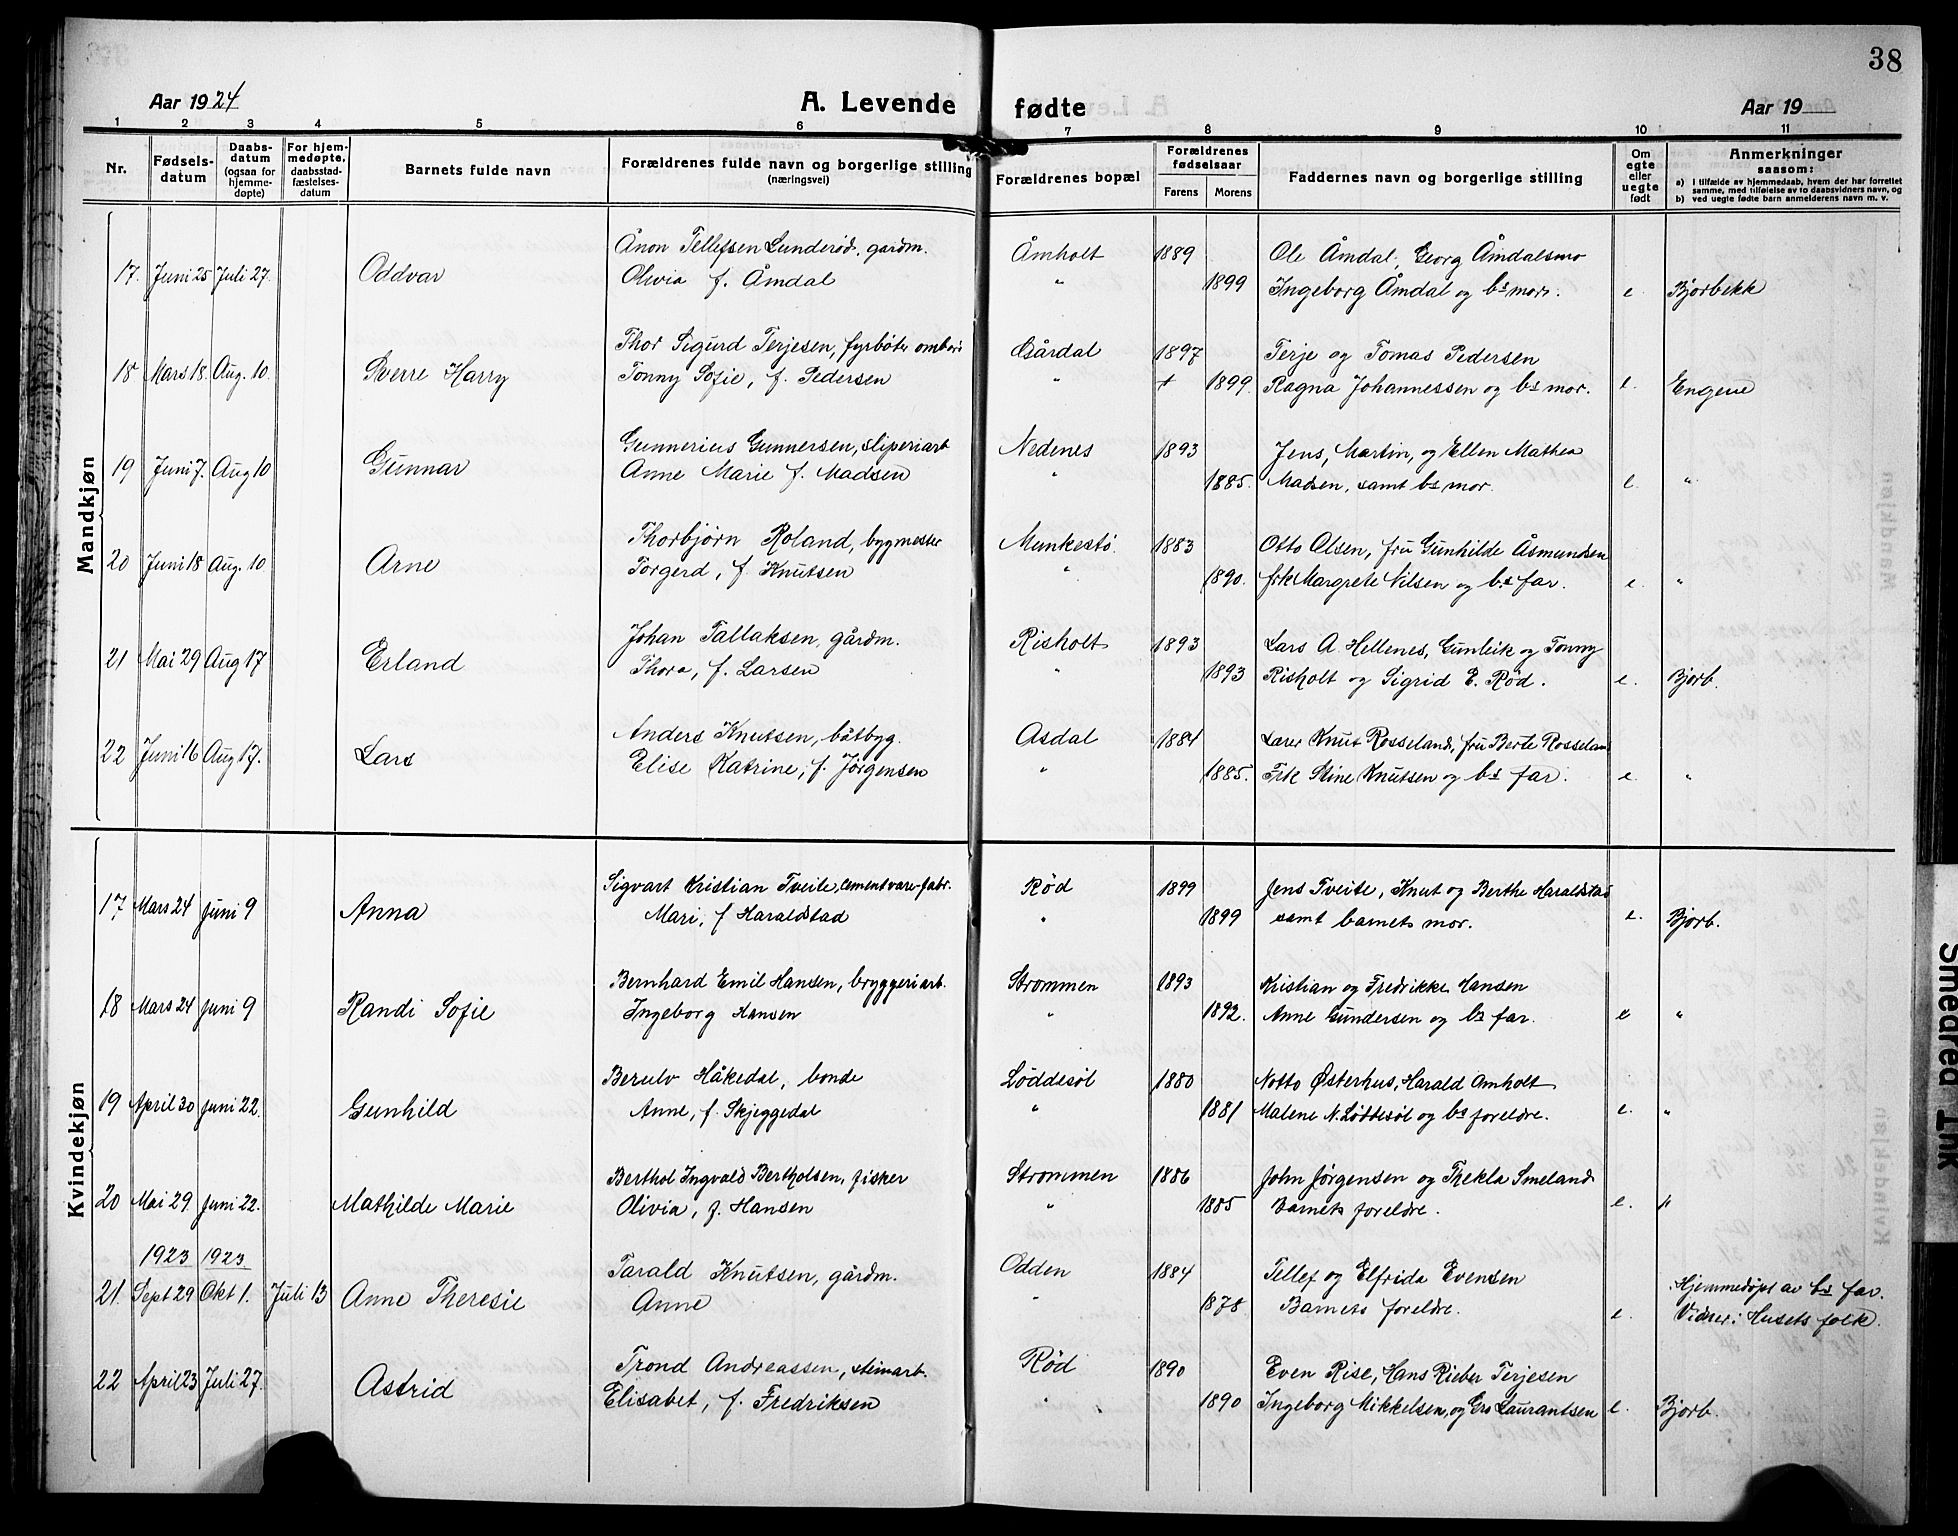 38
Aar 1924 A. Levende fødte Aar 19
1 2 3 4 5 6 7 8 9 10 11
Nr. Fødsels-datum Daabs-datum (ogsaa for hjemme-døpte) For hjem-medøpte, daabsstad-fæstelses-datum Barnets fulde navn Forældrenes fulde navn og borgerlige stilling (næringsvei) Forældrenes bopæl Forældrenes fødselsaar Farens Morens Faddernes navn og borgerlige stilling Om egte eller uegte født Anmerkninger saasom: a) I tilfælde av hjemmedaab, hvem der har forrettet samme, med tilføielse av to daabsvidners navn, og b) ved uegte fødte barn anmelderens navn m. v.
Mandkjøn
Ånon Tellefsen Lunderød, gardm. Åmholt 1889 Ole Åmdal, Georg Åmdalsmo
17. Juni 25 Juli 27. Oddvar Olivia f. Åmdal " 1899 Ingeborg Åmdal og bs mor. e. Bjorbekk
Thor Sigurd Terjesen, fyrbøter ombord Gårdal 1897 Terje og Tomas Pedersen
18 Mars 18. Aug. 10. Sverre Harry Tonny Sofie, f. Pedersen " + 1899. Ragna Johannessen og bs mor. e. Engene
Gunnerius Gunnersen, sliperiarb Nedenes 1893 Jens, Martin, og Ellen Mathea
19 Juni 7. Aug 10 Gunnar Anne Marie f. Madsen " 1885. Madsen, samt bs mor. e. "
Thorbjørn Roland, bygmester Munkestø. 1883 Otto Olsen, fru Gunhilde Åsmundsen
20 Juni 18 Aug. 10 Arne Torgerd, f. Knutsen " 1890. frk Margrete Nilsen og bs far. e. "
Johan Tallaksen, gårdm. Risholt 1893 Lars A Hellenes, Gunleik og Tonny
21 Mai 29 Aug 17 Erland Thora, f. Larsen " 1893 Risholt og Sigrid E. Rød. e. Bjorb.
Anders Knutsen, båtbyg. Asdal 1884 Lærer Knut Rosseland, fru Berte Rosseland
22 Juni 16 Aug 17. Lars Elise Katrine, f. Jørgensen " 1885. Frk Stine Knutsen og bs far. e. "
Kvindekjøn
Sigvart Kristian Tveite, cementvare-fabr. Rød 1899 Jens Tveite, Knut og Berthe Haraldstad
17 Mars 24 Juni 9 Anna Mari, f Haraldstad " 1899 samt barnets mor. e. Bjorb.
Bernhard Emil Hansen, bryggeriarb. Strømmen 1893 Kristian og Fredrikke Hansen
18 Mars 24 Juni 9 Randi Sofie Ingeborg Hansen " 1892. Anne Gundersen og bs far. e "
Berulv Håkedal, bonde Løddesøl 1880 Notto Østerhus, Harald Amholt
19 April 30 Juni 22. Gunhild Anne, f. Skjeggedal " 1881 Malene N. Løddesøl og bs foreldre. e. "
Berthol Ingvald Bertholsen, fisker Strømmen 1886 John Jørgensen og Thekla Smeland
20 Mai 29. Juni 22. Mathilde Marie Olivia, f. Hansen " 1885 Barnets foreldre. e. "
1923 1923 Tarald Knutsen, gårdm. Odden 1884 Tellef og Elfrida Evensen Hjemmedøpt av bs far.
21. Sept 29 Okt 1. Juli 13 Anne Theresie Anne " 1878. Barnets foreldre. e. Vidner: Husets folk.
Trond Andreassen, steinarb. Rød 1890 Even Rise, Hans Rieber Terjesen
22 April 23 Juli 27. Astrid Elisabet, f. Fredriksen " 1890 Ingeborg Mikkelsen, og Gro Laurantsen e Bjorb.
Smeared Ink